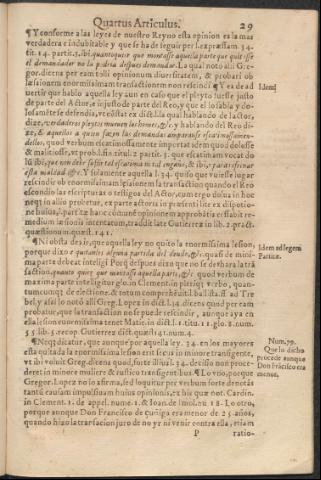 Quartus Articulus. 29
¶ Y conforme a las leyes de nuestro Reyno esta opinion es la mas
verdadera e indubitable y que se ha de seguir per l. expræssam 34.
tit. 14. partit. 5. ibi, quantoquier que mostrasse aquella parte que quitasse
el demandador no lo podria despues demandar. La qual notò alli Gre-
gor. dicens per eam tolli opinionum diuersitatem, & probari ob
læsionem enormissimam transactionem non rescindi. ¶ Y ea de ad
uertir que habla aquella ley aun en caso que el pleyto fuesse justo
de parte del Actor, e injusto de parte del Reo, y que el lo sabia y do-
losamẽte se defendia, vt cõstat ex dict. l. la qual hablando de lactor,
dize, verdaderos pleytos mueuen los homes, &c. y hablando del Reo di-
ze, & aquellos a quien facen las demandas amparanse escatimosamen-
te dellos, quod verbum escatimosamente importat idem quod dolosse
& malitiosse, vt probat l. fin. titul. 2. partit. 3. que escatiman vocat do
lũ ibi, que non debe ser
esta maldad &c. ¶ Y solamente aquella l. 34. quiso que vuiesse lugar
rescindir ob enormissimam læsionem la transaction quando el Reo
escondio las escripturas o testigos del Actor, cum ergo dolus in hoc
neqɜ in alio
ne huius. partit.
medium læsionis intentatum, traddit late Gutierrez in lib. 2. pract.
quæstionum quæst. 141.
¶ Ni obsta dezir, que aquella ley no quito la enormissima lesion,
porque dixo e quitandol alguna partida del deudo, &c. quasi de mini-
ma parte debeat intelligi
saction, quanto quier que mostrasse aquella parte, &c. quod verbum de
maxima parte intelligitur
tumcumqɜ de electione, & totum comprehendit
bel. y assi lo notò alli Greg. Lopez in dict. l. 34. dicens quod per eam
probatur, que la transaction no se puede rescindir, aunque aya en
ella lesion enormissima tenet Matie. in dict. l. 1. titu. 11. glo. 8. num.
55. lib. 5. recop. Gutierrez dict. quæst. 141. num. 4.
¶ Neqɜ dicatur, que aunque por aquella ley. 34. en los mayores
esta quitada la enormissima lesion erit secus in minore transigente,
vt ibi voluit Greg. dicens quod, forte illius l. 34. decisio non proce-
deret in minore muliere & rustico transigentibus. ¶ Lo vno, porque
Gregor. Lopez no lo afirma, sed loquitur per verbum forte denotãs
tantũ causam impulsiuam huius opinionis, ex his quæ not. Cardin.
in Clement. 1. de appel. nume. 1. & Ioan. de Imol. nu. 18. Lo otro,
porque aunque Don Francisco de çuñiga era menor de 25. años,
quando hizo la transaction juro de no yr ni venir contra ella, etiam
P ratio-
Idem
Idem ad legem
Partitæ.
Num. 79.
Que lo dicho
procede aunque
Don Frãcisco era
menor.